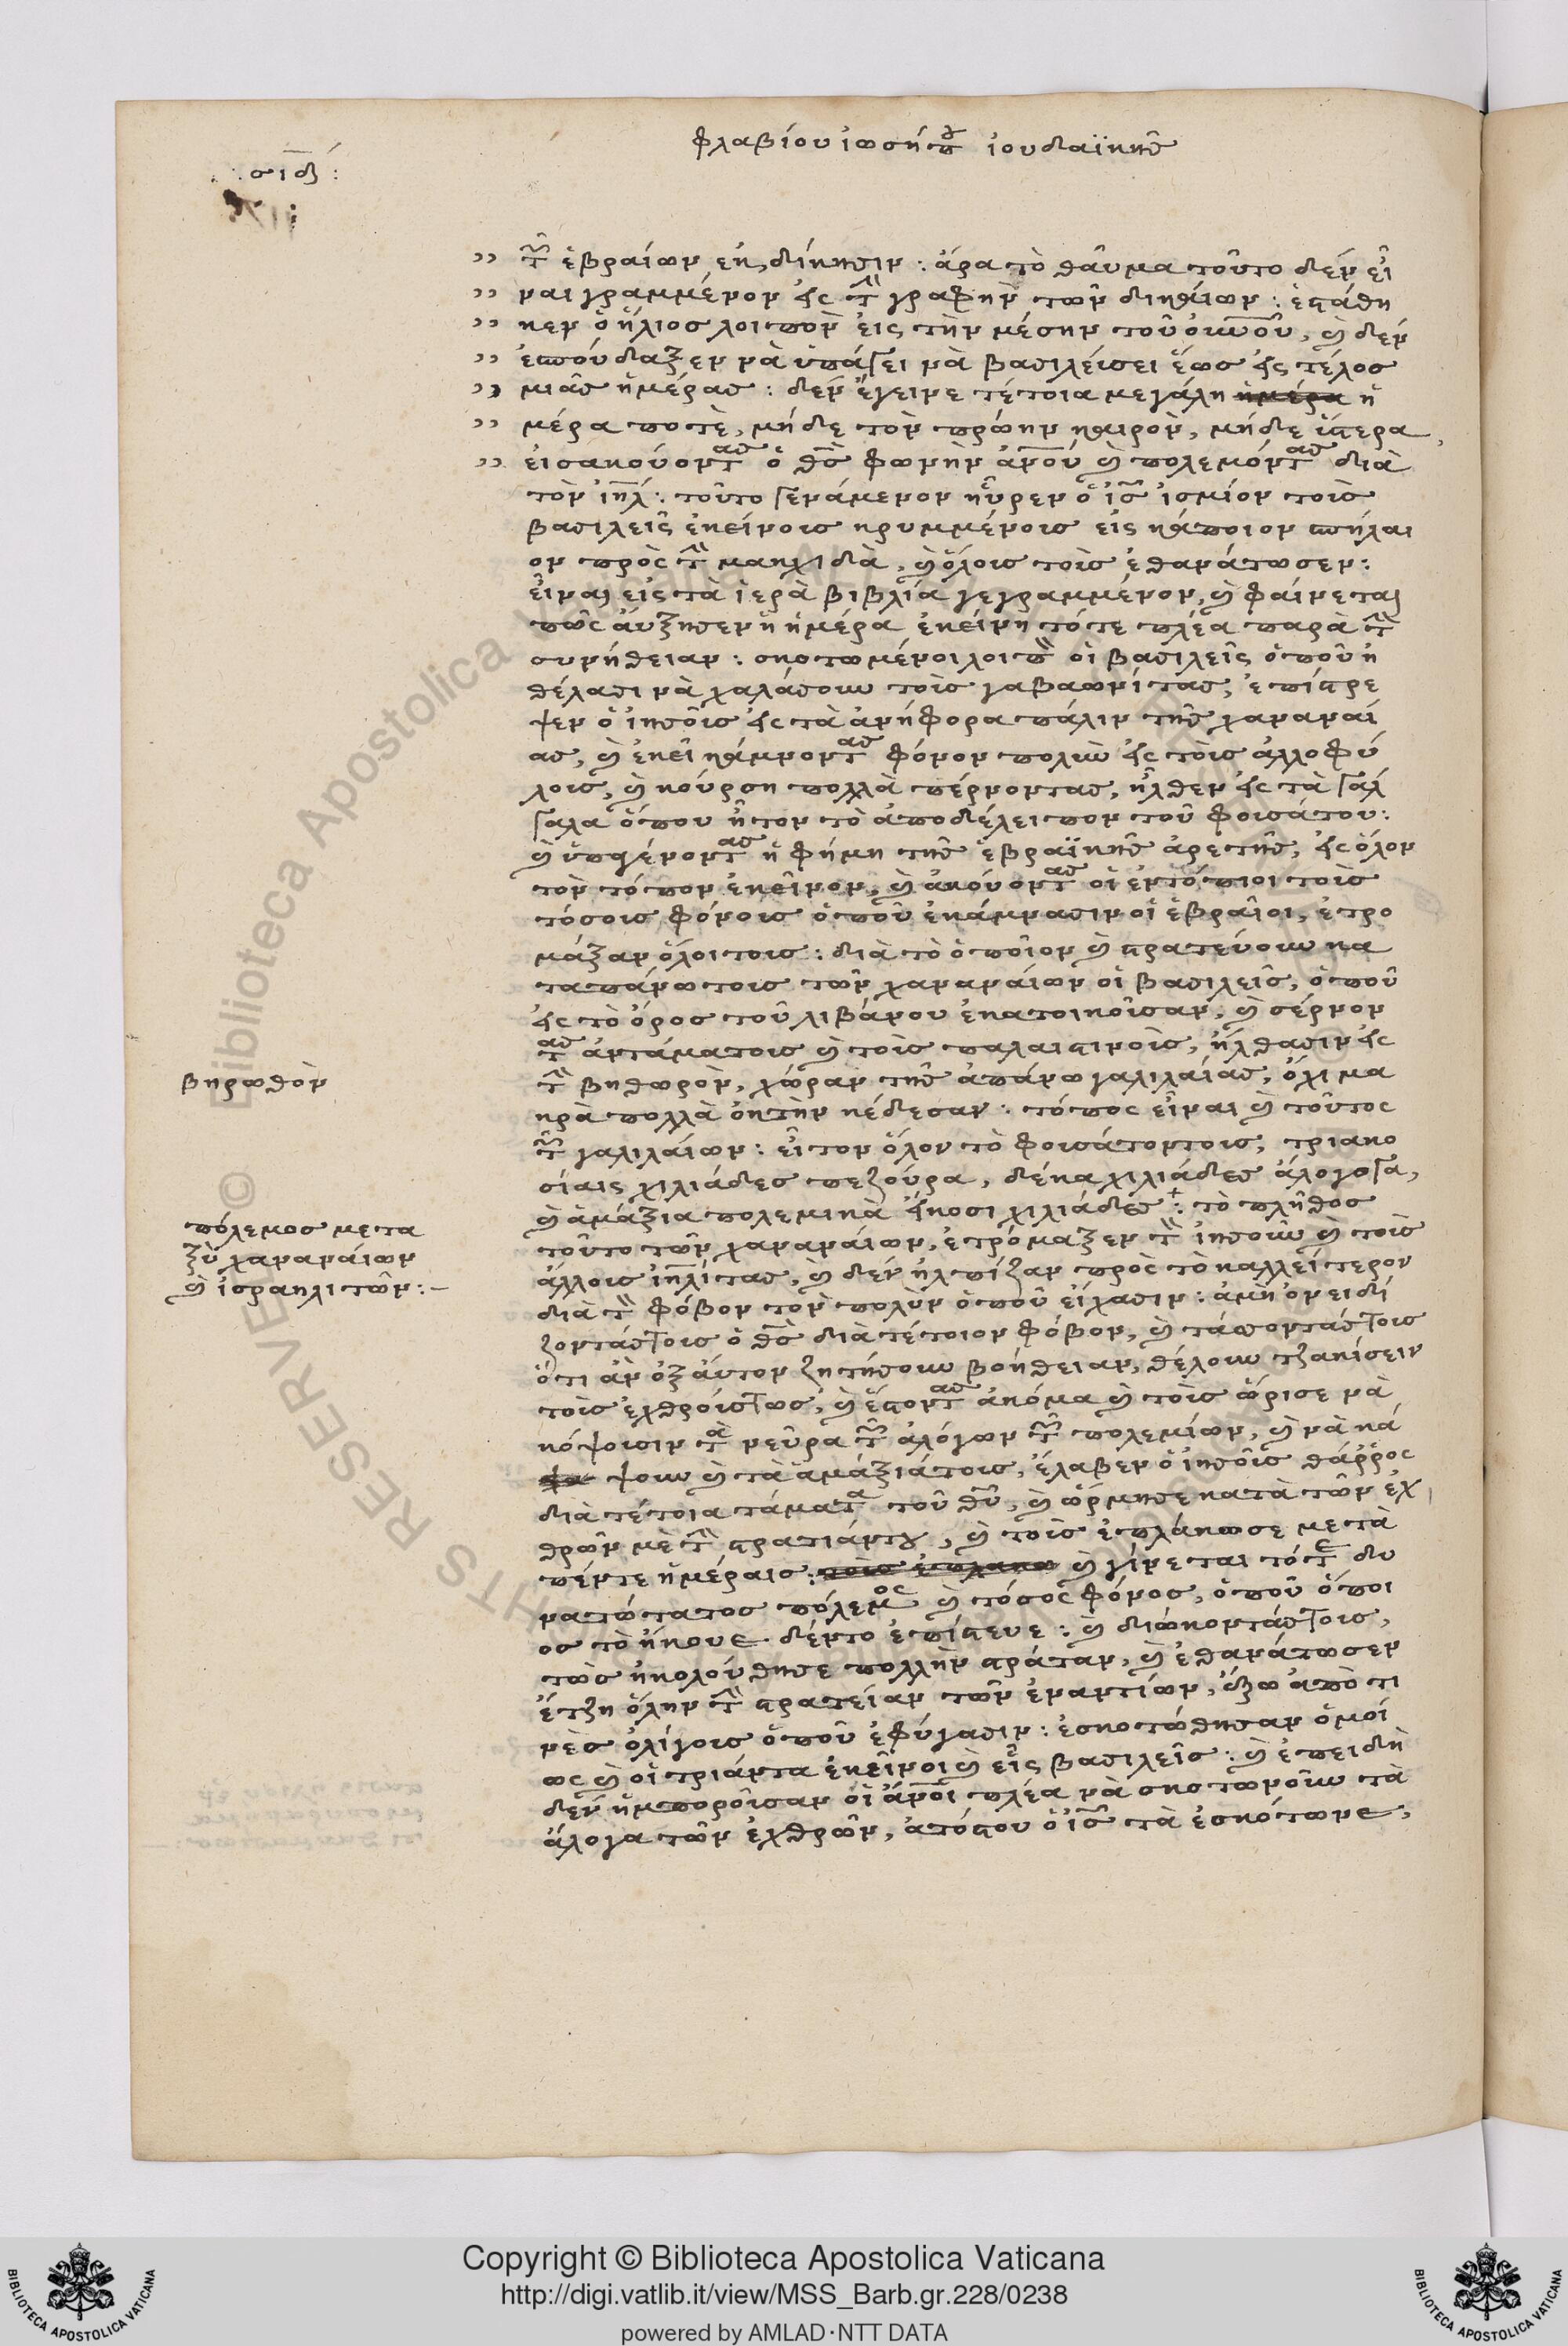 φλαβίου ἰωσήπου ἰουδαϊκῆς
σιδ :
τῶν ἑβραίων ἐκδίκησιν : ἆρα τὸ θαῦμα τοῦτο δὲν εἶ
ναι γραμμένον εἰς τὴν γραφὴν τῶν δικαίων : ἐστάθη
κεν ὁ ἥλιος λοιπὸν εἰς τὴν μέσην τοῦ οὐνοῦ, καὶ δὲν
ἐσπούδαξεν νὰ ὑπάγει νὰ βασιλεύσει ἕως εἰς τέλος
μιᾶς ἡμέρας : δὲν ἔγεινε τέτοια μεγάλη ἡμέρα ἡ
μέρα ποτὲ, μήδε τὸν πρώην καιρὸν, μήδε ὕστερα,
εἰσακούοντας ὁ θς φωνὴν ἀνου καὶ πολεμόντας διὰ
τὸν ιηλ : τοῦτο γενάμενον ηὗρεν ὁ ις
βασιλεῖς ἐκείνοις κρυμμένοις εἰς κάποιον σπήλαι
ον πρὸς τὴν μακχιδὰ, καὶ ὅλοις τοὶς ἐθανάτωσεν :
εἶναι εἰς τὰ ἱερὰ βιβλία γεγραμμένον, καὶ φαίνεται
πῶς αὔξησεν ἡ ἡμέρα ἐκείνη τότε πλέα παρὰ τὴν
συνήθειαν : σκοτωμένοι λοιπὸν οἱ βασιλεῖς ὁποῦ ἠ
θέλασι νὰ χαλάσουν τοὶς γαβαωνίτας, ἐπίστρε
ψεν ὁ ἰησοῦς εἰς τὰ ἀνήφορα πάλιν τῆς χαναναί
ας, καὶ ἐκεῖ κάμνοντας φόνον πολὺν εἰς τοὶς ἀλλοφύ
λοις, καὶ κούρση πολλὰ πέρνοντας, ἦλθεν εἰς τὰ γάλ
γαλα ὅπου ἦτον τὸ ἀποδέλειπον τοῦ φουσάτου :
καὶ ὑπαγένοντας ἡ φήμη τῆς ἑβραϊκῆς ἀρετῆς, εἰς ὅλον
τὸν τόπον ἐκεῖνον, καὶ ἀκούοντας οἱ ἐντόπιοι τοὶς
τόσοις φόνοις ὁποῦ ἐκάμνασιν οἱ ἑβραῖοι, ἐτρο
μάξαν ὅλοι τοις : διὰ τὸ ὁποῖον καὶ στρατεύουν κα
ταπάνω τοις τῶν χαναναίων οἱ βασιλεῖς, ὁποῦ
εἰς τὸ ὄρος τοῦ λιβάνου ἐκατοικοῦσαν, καὶ σέρνον
τας ἀντάμα τοις καὶ τοὶς παλαιστινοὶς, ἤλθασιν εἰς
τὴν βηθωρὸν, χώραν τῆς ἀπάνω γαλιλαίας, ὄχι μα
κρὰ πολλὰ ἐκ τὴν κέδεσαν : τόπος εἶναι καὶ τοῦτος
τῶν γαλιλαίων : εἶτον ὅλον τὸ φουσάτον τοις, τριακο
σίαις χιλιάδες πεζούρα, δέκα χιλιάδες ἀλογογα,
καὶ ἁμάξια πολεμικὰ εἴκοσι χιλιάδες : τὸ πλῆθος
τοῦτο τῶν χαναναίων, ἐτρόμαξεν τὸν ἰησοῦν καὶ τοὶς
ἄλλοις ιηλίτας, καὶ δὲν ἠλπίζαν πρὸς τὸ καλλείτερον
διὰ τὸν φόβον τὸν πολὺν ὁποῦ εἴχασιν : ἀμὴ ὀνειδί
ζοντάς τοις ὁ θς διὰ τέτοιον φόβον, καὶ τάσσοντάς τοις
ὅτι ἂν ἐξ αὐτον ζητήσουν βοήθειαν, θέλουν τζακίσειν
τοὶς ἐχθρούς τως, καὶ ἔστοντας ἀκόμα καὶ τοὶς ὥρισε νὰ
κόψουσιν τὰ νεῦρα τῶν ἀλόγων τῶν πολεμίων, καὶ νὰ κά
ψα ψουν καὶ τὰ ἁμάξιά τοις, ἔλαβεν ὁ ἰησοῦς θάῤῥος
διὰ τέτοια τάματα τοῦ θυ, καὶ ὥρμησε κατὰ τῶν ἐχ
θρῶν μὲ τὴν στρατιάν του, καὶ τοὶς ἐπλάκωσε μετὰ
πέντε ἡμέραις : τοὶς ἐπλακω καὶ γίνεται τότε δυ
νατώτατος πόλεμος καὶ τόσος φόνος, ὁποῦ ὅποι
ος τὸ ἤκουε δὲν το ἐπίστευε : καὶ διώκοντάς τοις,
τὼς ἠκολούθησε πολλὴν στράταν, καὶ ἐθανάτωσεν
ἔτζη ὅλην τὴν στρατείαν τῶν ἐναντίων, ἔξω ἀπὸ τι
νὲς ὀλίγοις ὁποῦ ἐφύγασιν : ἐσκοτώθησαν ὁμοί
ως καὶ οἱ τριάντα ἐκεῖνοι καὶ εἷς βασιλεῖς : καὶ ἐπειδὴ
δὲν ἠμποροῦσαν οἱ ἀνοι πλέα νὰ σκοτωνοῦν τὰ
ἄλογα τῶν ἐχθρῶν, ἀτόςου ὁ ις τὰ ἐσκότωνε,
βηρωθὸν
πόλεμος μετα
ξὺ χαναναίων
καὶ ἰσραηλιτῶν :-
Copyright © Biblioteca Apostolica Vaticana
http://digi.vatlib.it/view/MSS_Barb.gr.228/0238
powered by AMLAD·NTT DATA
BIBLIOTECA APOSTOLICA VATICANA
BIBLIOTECA APOSTOLICA VATICANA